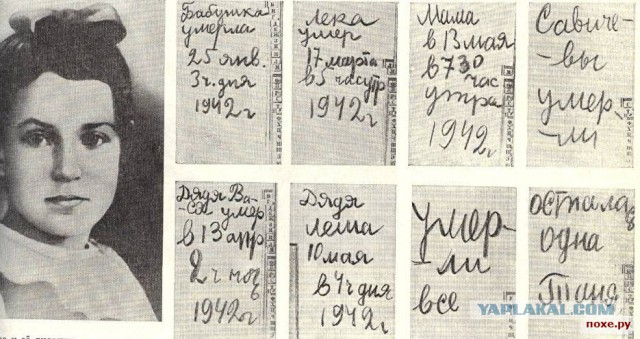 Бабушка
умерла
25 янв.
3 ч. дня
1942 г
Лека
умер
17 марта
в 5 час утр
1942 г
Мама
в 13 мая
в 730
час
утра
1942 г
Савиче-
-вы
умер-
-ли
Дядя Ва-
-ся умер
в 13 апр
2 ч ноч
1942 г
Дядя
Леша
10 мая
в 4 ч дня
1942 г
умер-
-ли
все
осталас
одна
Таня
YAPLAKAL.COM
похе.ру